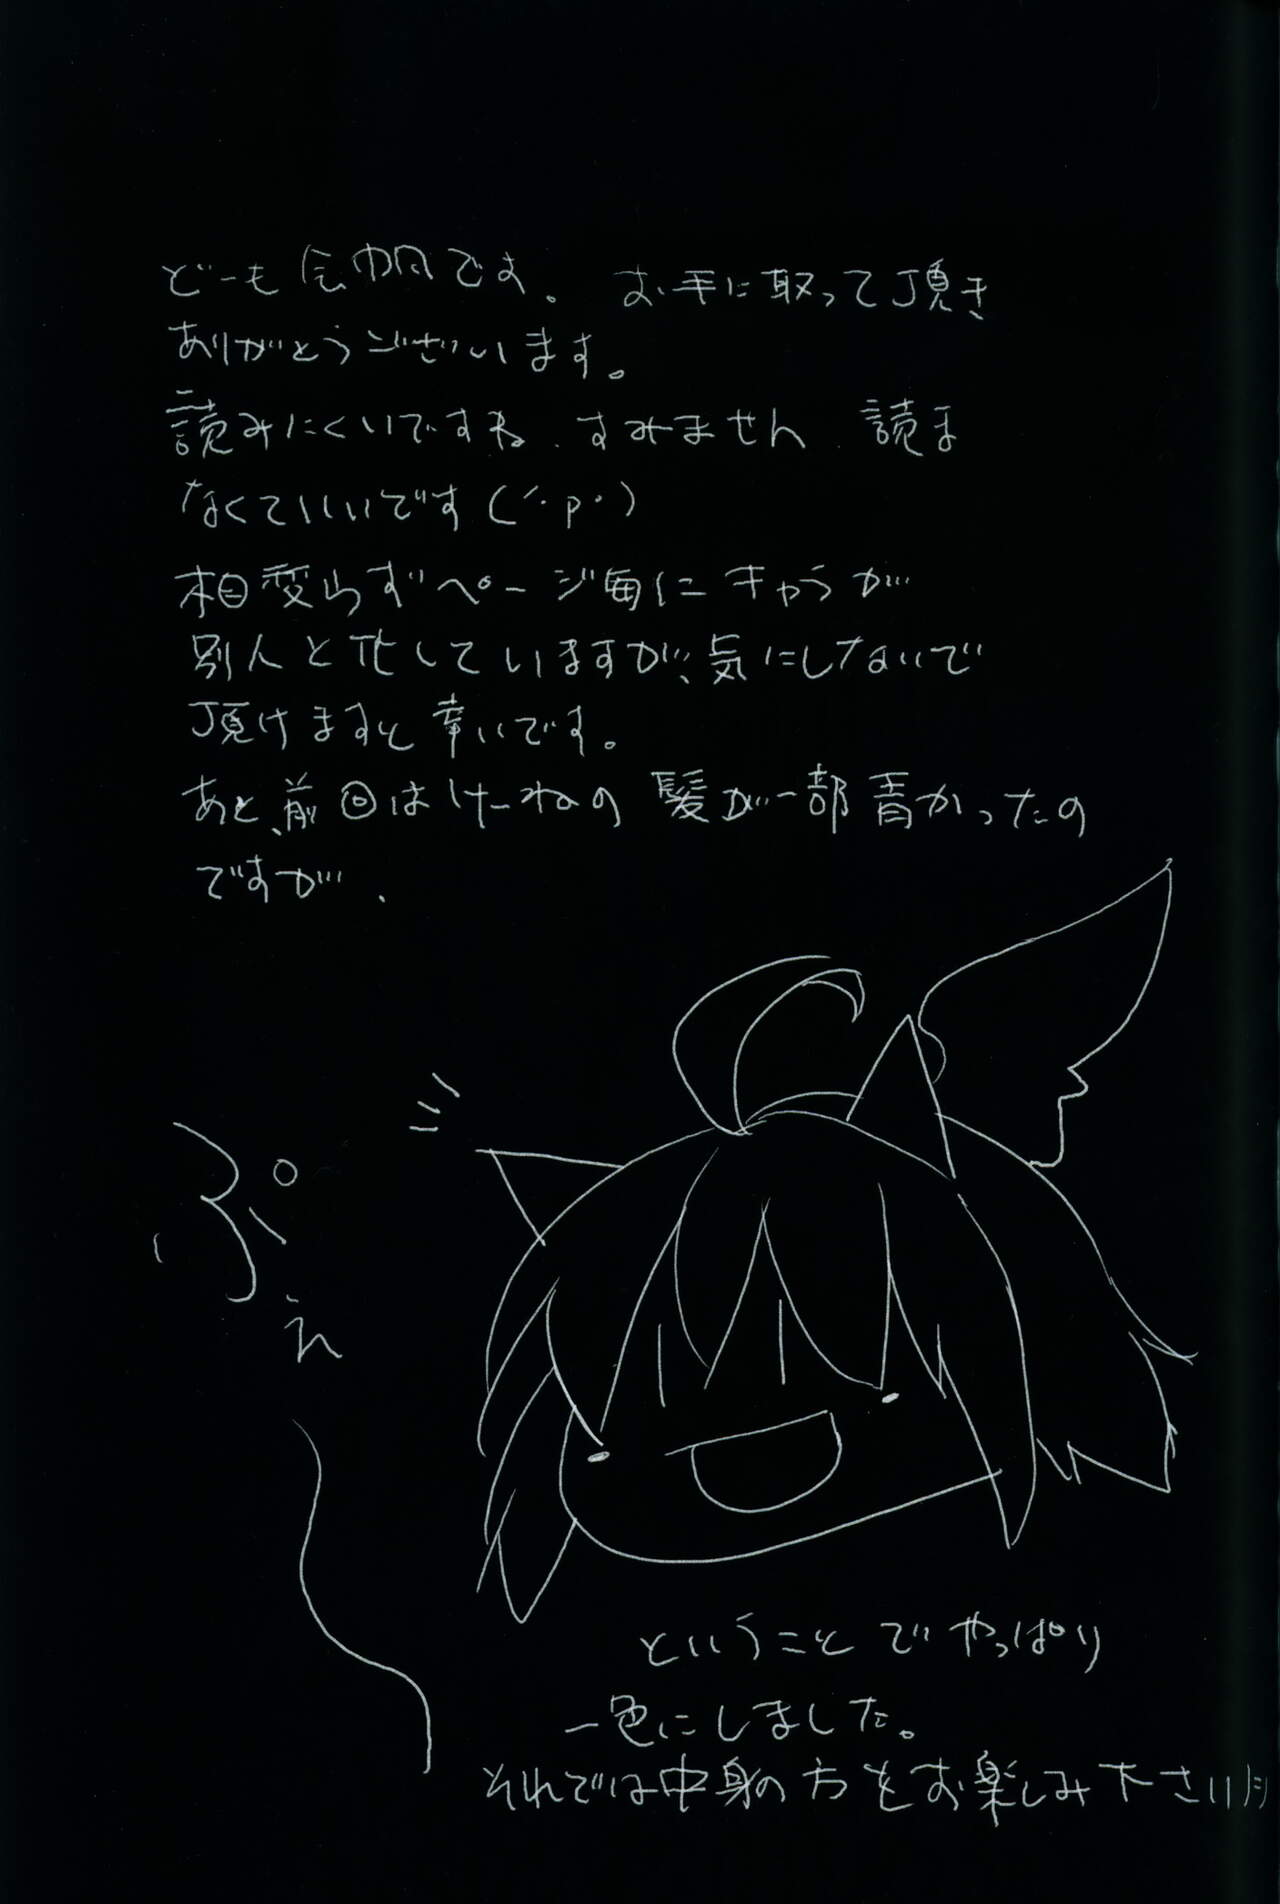 どーも です。 お手に取って頂き
ありがとうございます。
読みにくいですね、すみません 読ま
なくていいです(´・p・)
相変らずページ毎にキャラが
別人と化していますが、気にしないで
頂けますと幸いです。
あと、前回はけーねの髪が一部青かったの
ですが、
ぷぇ
ということでやっぱり
一色にしました。
それでは中身の方をお楽しみ下さい